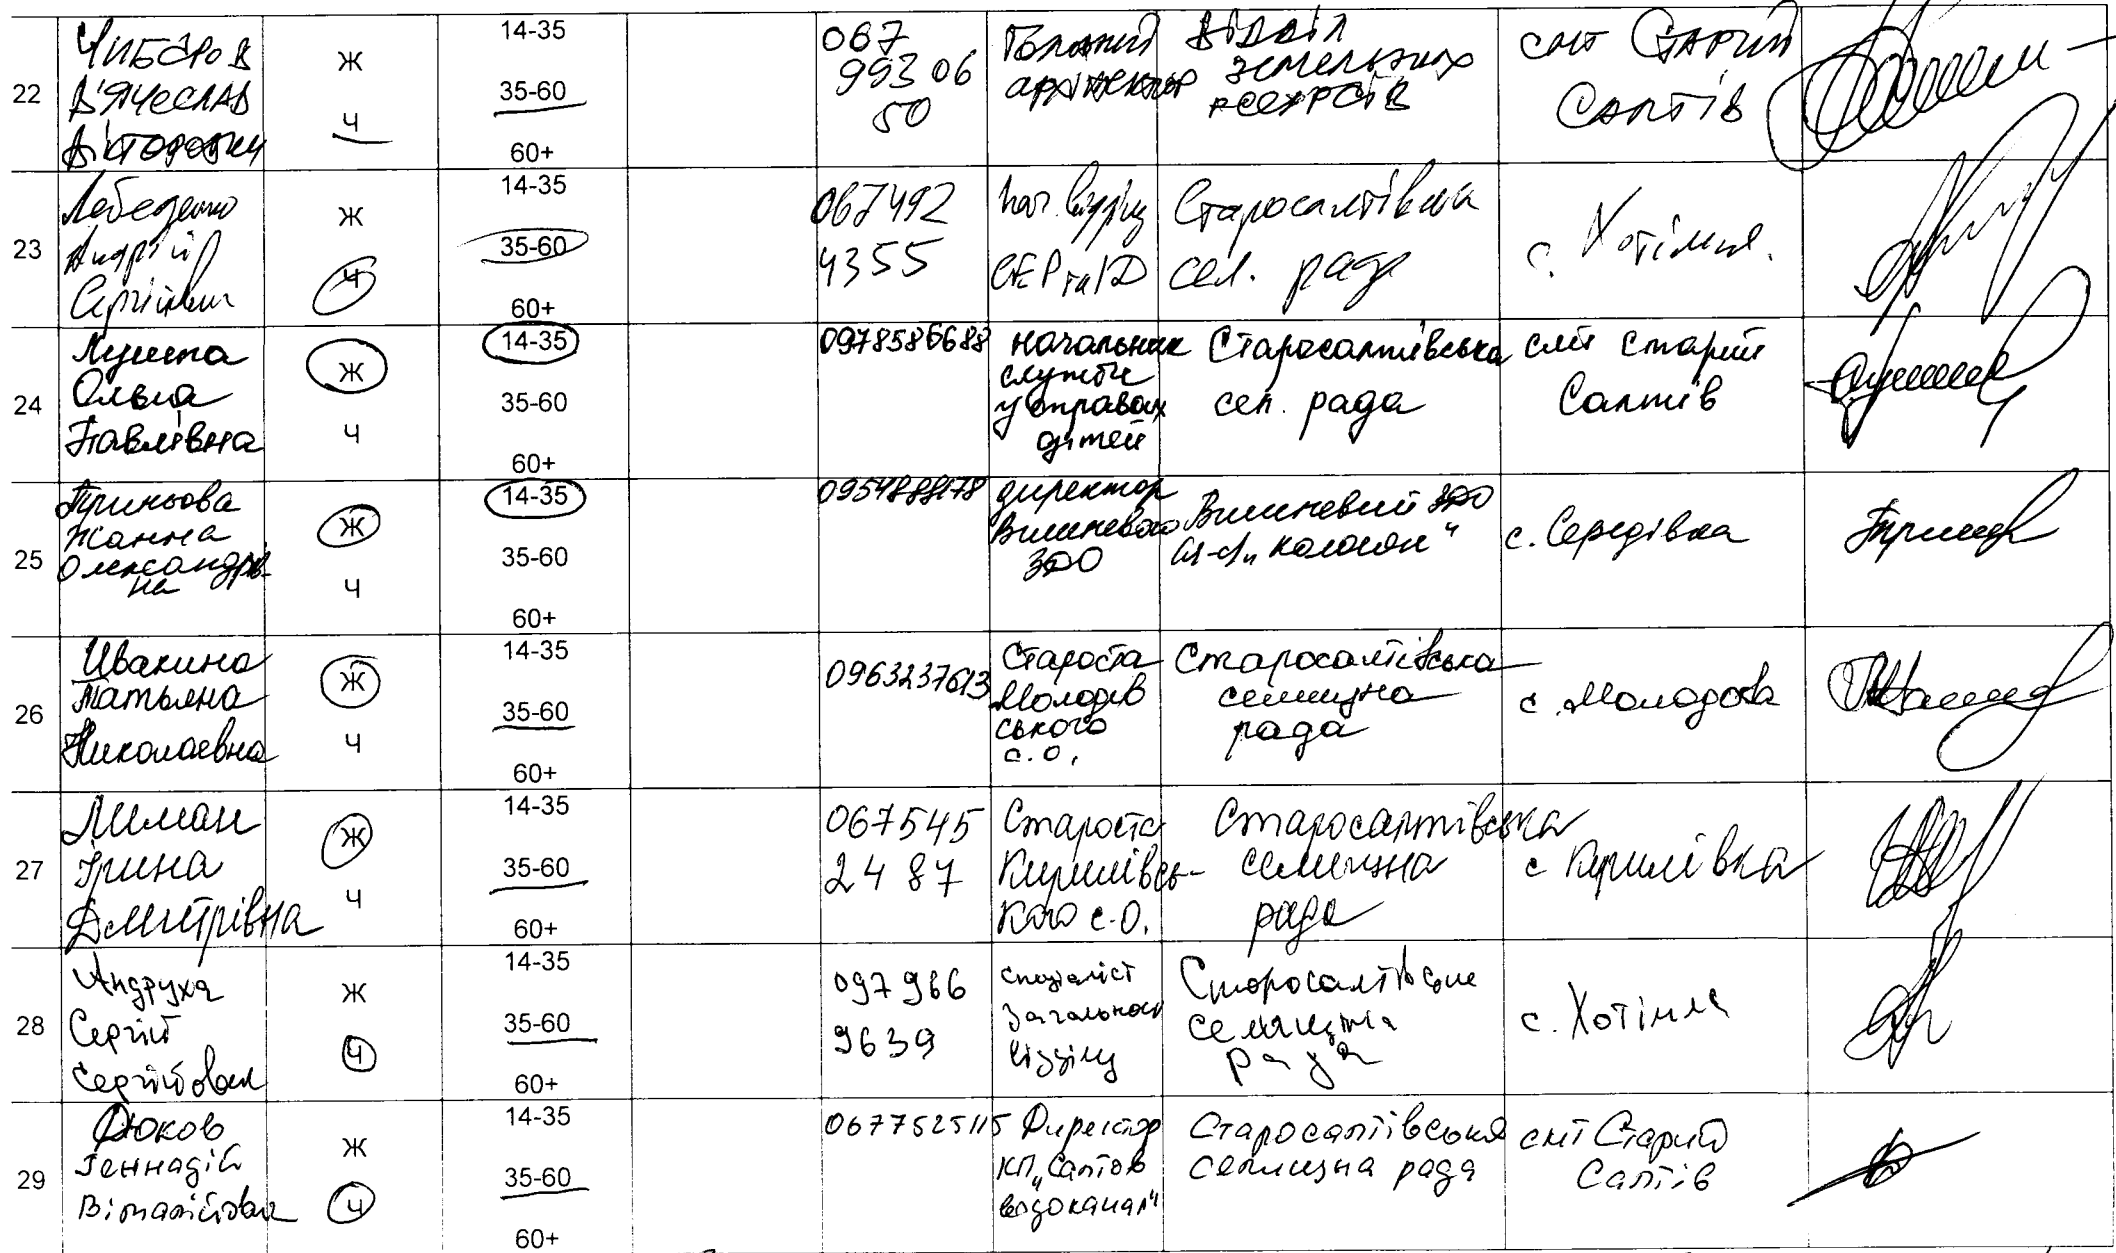 22
Чибісров
В'ячеслав
Вікторович
Ж
Ч
14-35
35-60
60+
067
993 06
50
Головний
архітектор
Відділ
земельних
ресурсів
смт Старий
Салтів
23
Лебеденко
Андрій
Сергійович
Ж
Ч
14-35
35-60
60+
067492
4355
нач. відділу
СЕР та ІД
Старосалтівська
сел. рада
с. Хотімля.
24
Ольга
Павлівна
Ж
Ч
14-35
35-60
60+
0978586688
начальник
служби
у справах
дітей
Старосалтівська
сел. рада
смт Старий
Салтів
25
Триньова
Жанна
Олександрів-
на
Ж
Ч
14-35
35-60
60+
0954888178
директор
Вишневого
ЗДО
Вишневий ЗДО
я-с „Колосок"
с. Середівка
26
Ивакина
Татьяна
Николаевна
Ж
Ч
14-35
35-60
60+
0963237613
Староста
Молодів
ського
с.о.
Старосалтівська
селищна
рада
с. Молодова
27
Лиман
Ірина
Дмитрівна
Ж
Ч
14-35
35-60
60+
067545
2487
Староста
Кирилівсь-
кого с.о.
Старосалтівська
селищна
рада
с Кирилівка
28
Андруха
Сергій
Сергійович
Ж
Ч
14-35
35-60
60+
097 966
9639
спеціаліст
Загального
відділу
Старосалтівське
селищна
рада
с. Хотімля
29
Дюков
Геннадій
Віталійович
Ж
Ч
14-35
35-60
60+
0677525115
Директор
КП „Салтов
водоканал"
Старосалтівська
селищна рада
смт Старий
Салтів